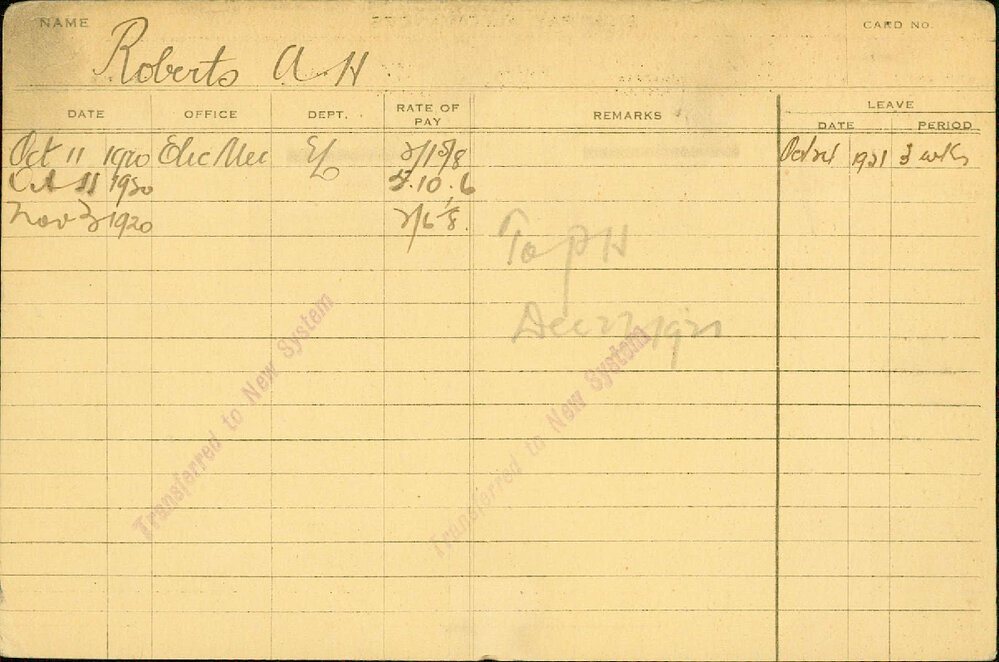 NAME
CARD NO.
Roberts A H
DATE OFFICE DEPT. RATE OF PAY REMARKS LEAVE
DATE PERIOD
Oct 11 1920 Elec Mec El 2/1 5/8 Oct 24 1921 3 wks
Oct 11 1920 5.10.6
Nov 3 1920 2/6 1/8
To P H
Dec 22 1921
Transferred to New System
Transferred to New System